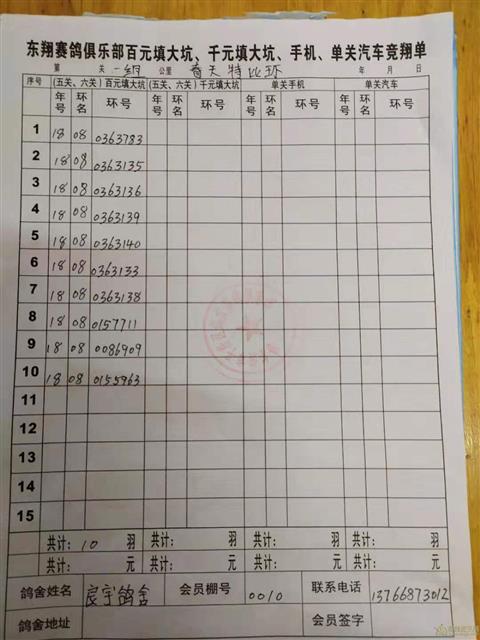 东翔赛鸽俱乐部百元填大坑、千元填大坑、手机、单关汽车竞翔单
第 关 一组 公里 春天特比环 年 月 日
序号 (五关、六关)百元填大坑 (五关、六关)千元填大坑 单关手机 单关汽车
年号 环名 环号 年号 环名 环号 年号 环名 环号 年号 环名 环号
1 18 08 0363783
2 18 08 0363135
3 18 08 0363136
4 18 08 0363139
5 18 08 0363140
6 18 08 0363133
7 18 08 0363138
8 18 08 0157711
9 18 08 0086909
10 18 08 0155963
11
12
13
14
15
共计: 10 羽 共计: 羽 共计: 羽 共计: 羽
共计: 元 共计: 元 共计: 元 共计: 元
鸽舍姓名 良宇鸽舍 会员棚号 0010 联系电话 13766873012
鸽舍地址 会员签字